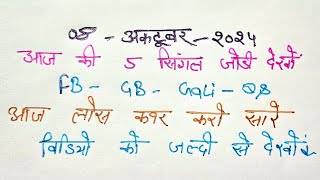 08 - अकटूबर - २०२५
आज की 5 सिंगल जोडी देखें
FB - GB - Gali - DS
आज लोस कवर करो सारे
विडियो को जल्दी से देखों